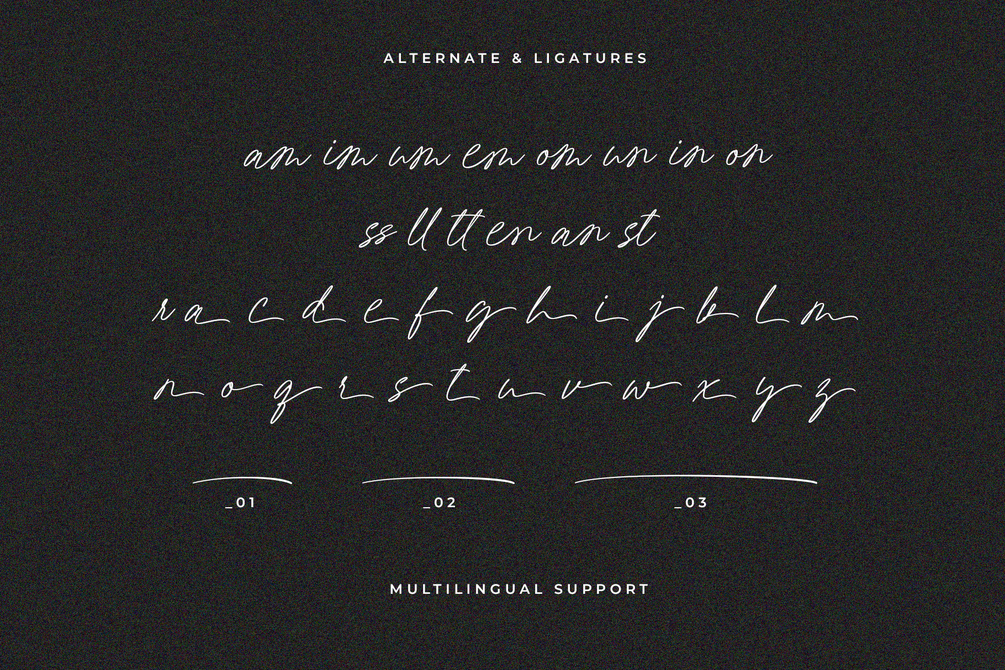 ALTERNATE & LIGATURES
am im um em om un in on
ss ll tt en an st
r a c d e f g h i j b l m
n o q r s t u v w x y z
_01 _02 _03
MULTILINGUAL SUPPORT